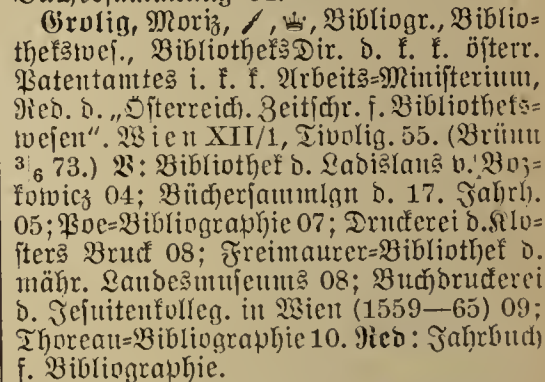 Grolig, Moriz, Bibliogr., Biblio=
thekswes., BibliotheksDir. d. k. k. österr.
Patentamtes i. k. k. Arbeits=Ministerium,
Red. d. „Österreich. Zeitschr. f. Bibliotheks=
wesen“. Wien XII/1, Tivolig. 55. (Brünn
3/6 73.) V: Bibliothek d. Ladislaus v. Boz=
kowicz 04; Büchersammlgn d. 17. Jahrh.
05; Poe=Bibliographie 07; Druckerei d. Klo=
sters Bruck 08; Freimaurer=Bibliothek d.
mähr. Landesmuseums 08; Buchdruckerei
d. Jesuitenkolleg. in Wien (1559—65) 09;
Thoreau=Bibliographie 10. Red: Jahrbuch
f. Bibliographie.